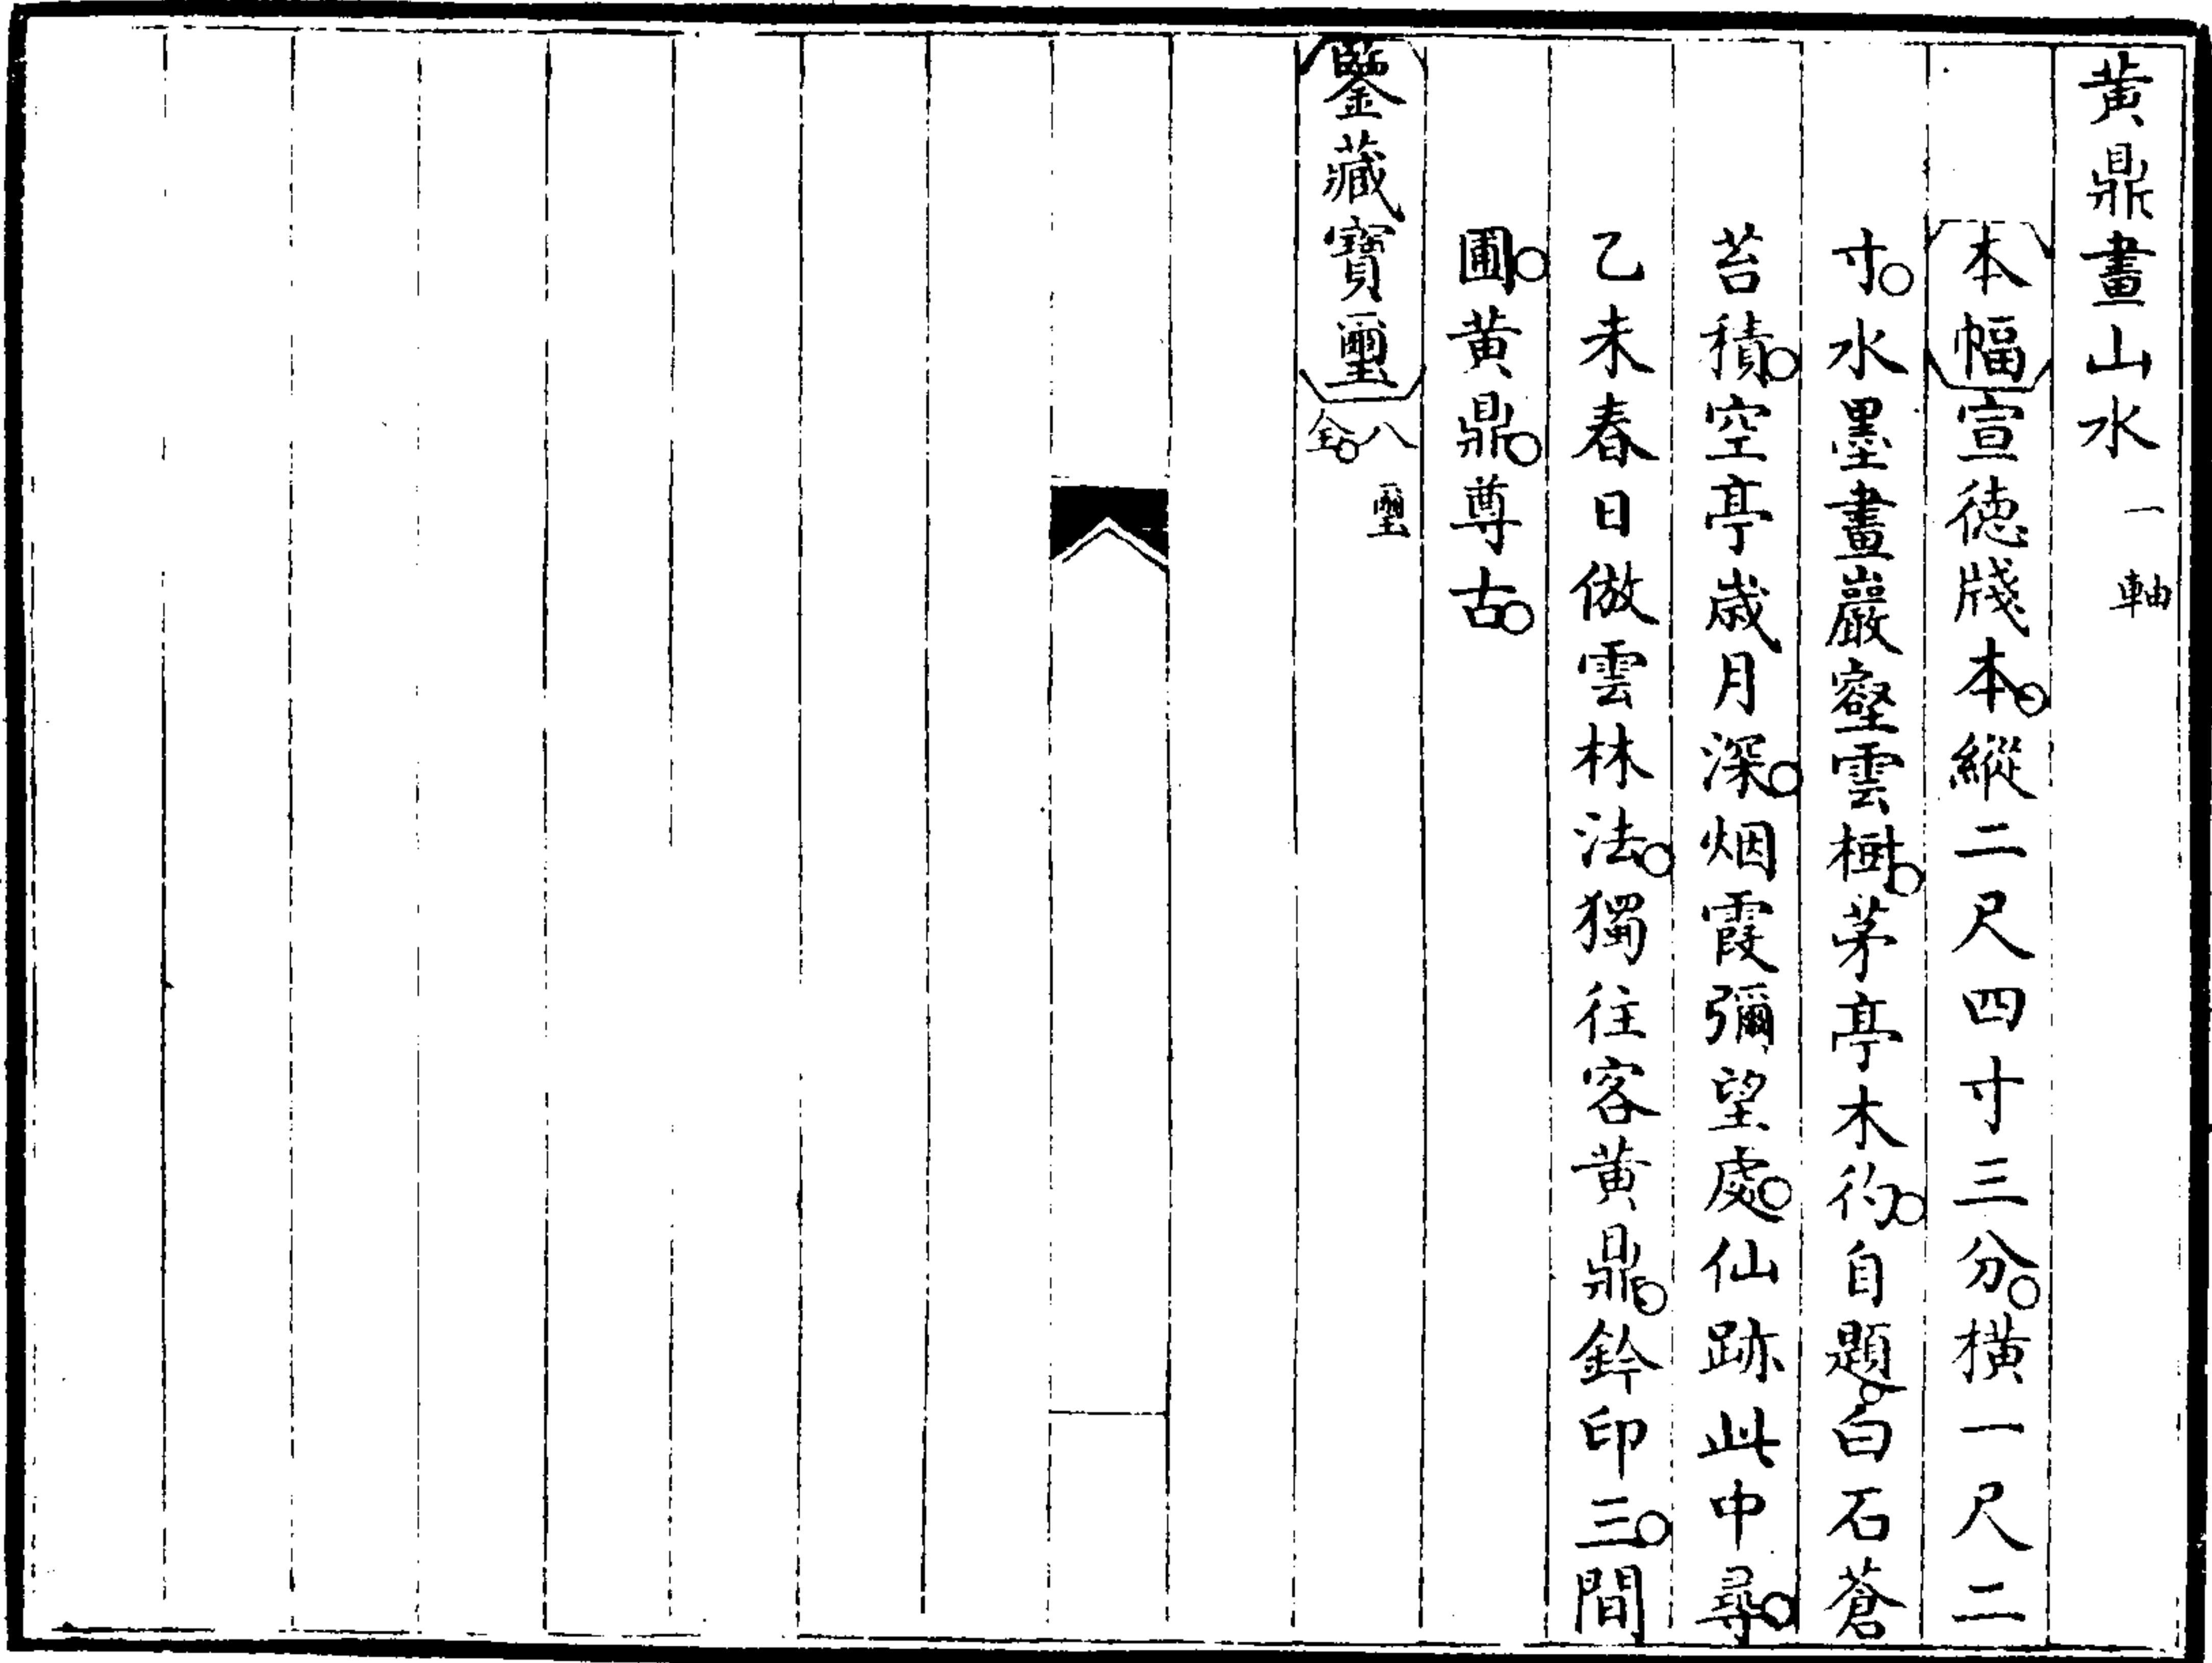 黃鼎畫山水一軸
本幅宣徳牋本縱二尺四寸三分橫一尺二
寸水墨畫巖壑雲樹茅亭木彴自題白石蒼
苔積空亭歲月深烟霞彌望處仙跡此中尋
乙未春日倣雲林法獨往客黃鼎鈐印三閒
圃黃鼎尊古
鑒藏寶璽八璽全